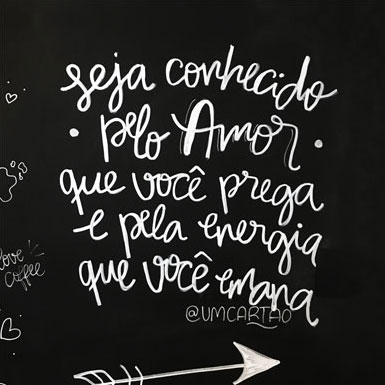 seja conhecido
• pelo Amor •
que você prega
e pela energia
que você emana
@UMCARTAO
love
coffee